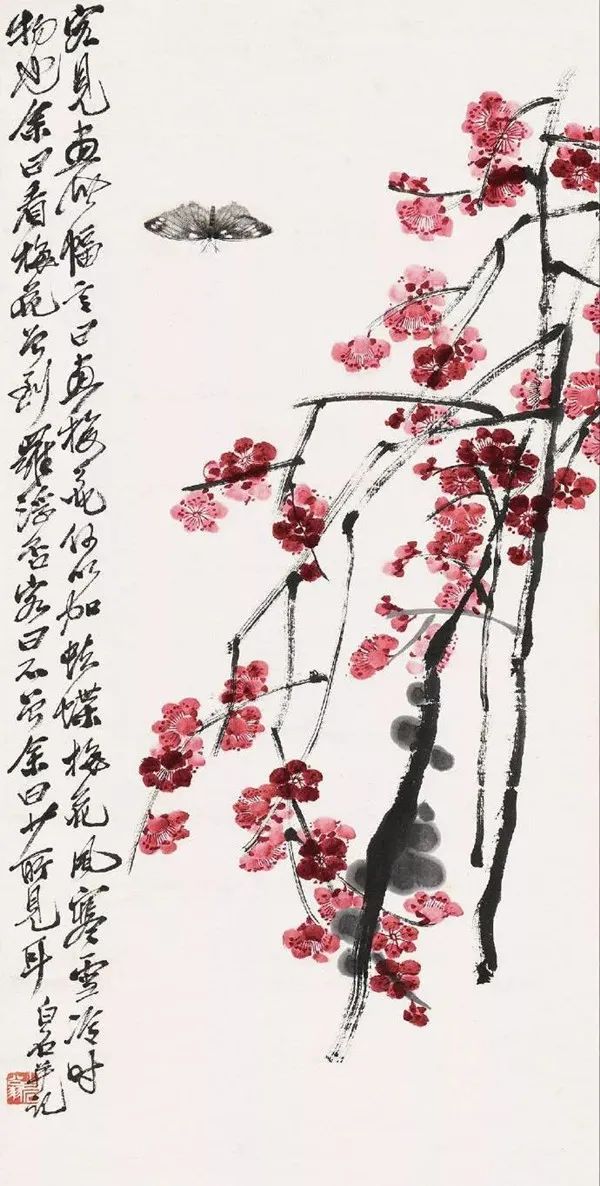 客見畫此幅言曰畫梅花何以加蛺蝶梅花風寒雪冷時
物也余曰看梅花曾到羅浮否客曰不曾余曰少所見耳
白石並記